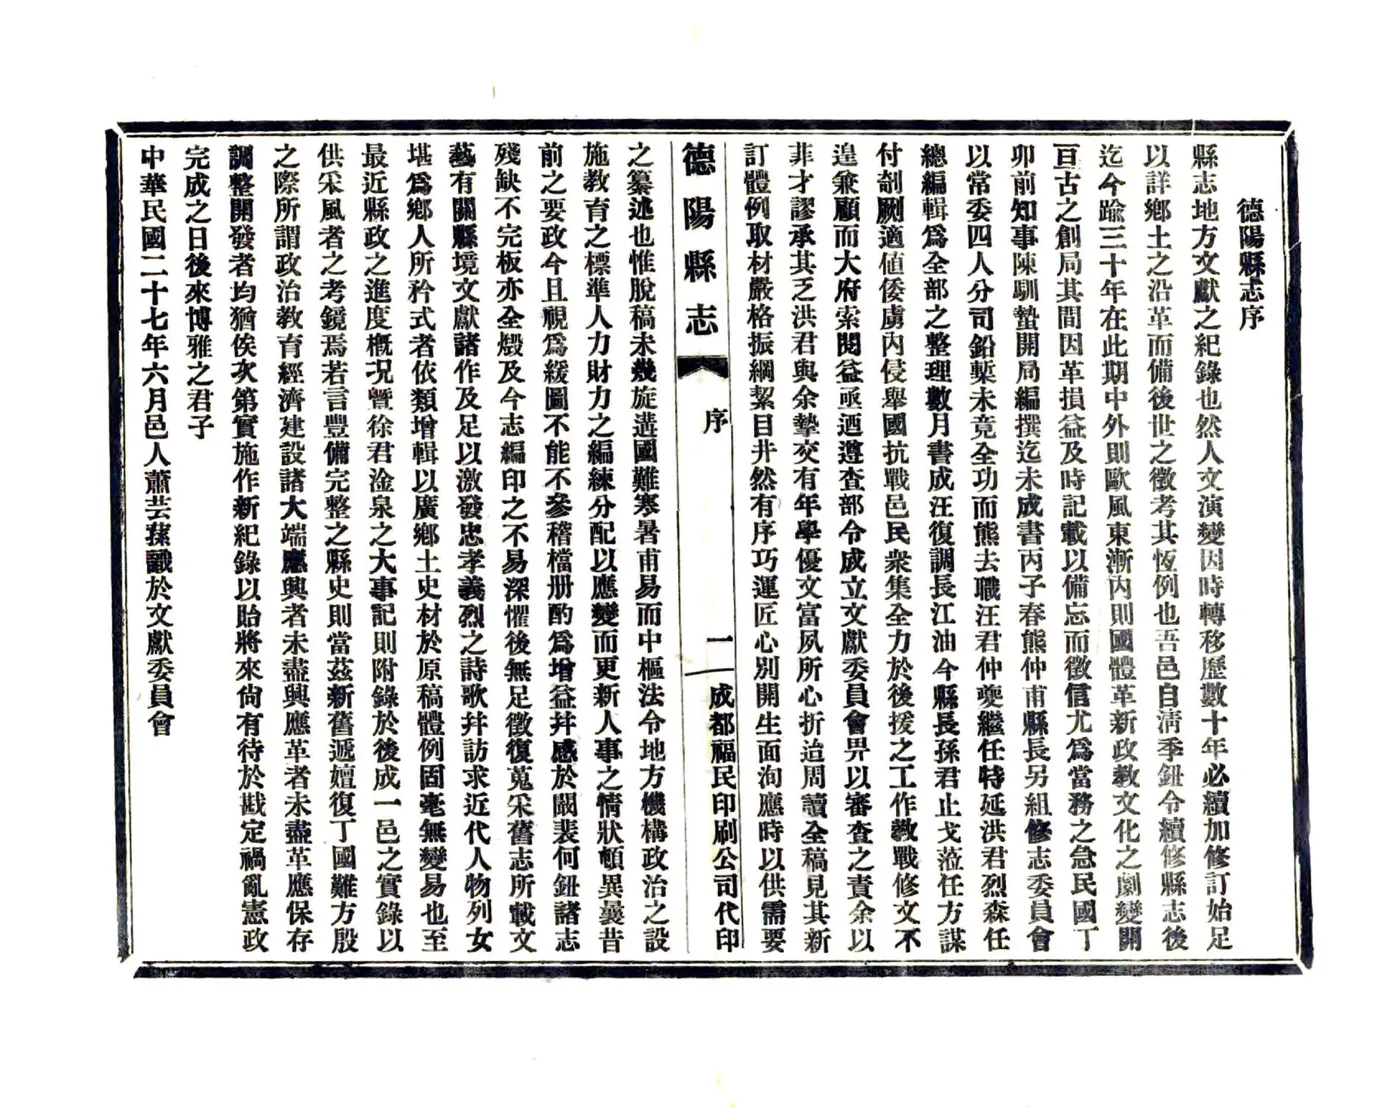 德陽縣志序
縣志地方文獻之紀錄也然人文演變因時轉移歷數十年必續加修訂始足
以詳鄉土之沿革而備後世之徵考其恆例也吾邑自清季鈕令續修縣志後
迄今踰三十年在此期中外則歐風東漸內則國體革新政教文化之劇變開
亘古之創局其間因革損益及時記載以備忘而徵信尤為當務之急民國丁
卯前知事陳馴蟄開局編撰迄未成書丙子春熊仲甫縣長另組修志委員會
以常委四人分司鉛槧未竟全功而熊去職汪君仲夔繼任特延洪君烈森任
總編輯為全部之整理數月書成汪復調長江油今縣長孫君止戈蒞任方謀
付剞劂適值倭虜內侵舉國抗戰邑民衆集全力於後援之工作教戰修文不
遑兼顧而大府索閱益亟迺遵查部令成立文獻委員會畀以審查之責余以
非才謬承其乏洪君與余摯交有年學優文富夙所心折迨周讀全稿見其新
訂體例取材嚴格振綱絜目井然有序巧運匠心別開生面洵應時以供需要
德陽縣志
序
一
成都福民印刷公司代印
之纂述也惟脫稿未幾旋遘國難寒暑甫易而中樞法令地方機構政治之設
施教育之標準人力財力之編練分配以應變而更新人事之情狀頓異曩昔
前之要政今且視為緩圖不能不參稽檔册酌為增益幷感於闞裴何鈕諸志
殘缺不完板亦全燬及今志編印之不易深懼後無足徵復蒐采舊志所載文
藝有關縣境文獻諸作及足以激發忠孝義烈之詩歌幷訪求近代人物列女
堪為鄉人所矜式者依類增輯以廣鄉土史材於原稿體例固毫無變易也至
最近縣政之進度概况暨徐君淦泉之大事記則附錄於後成一邑之實錄以
供采風者之考鏡焉若言豐備完整之縣史則當茲新舊遞嬗復丁國難方殷
之際所謂政治教育經濟建設諸大端應興者未盡興應革者未盡革應保存
調整開發者均猶俟次第實施作新紀錄以貽將來尙有待於戡定禍亂憲政
完成之日後來博雅之君子
中華民國二十七年六月邑人蕭芸蓀識於文獻委員會